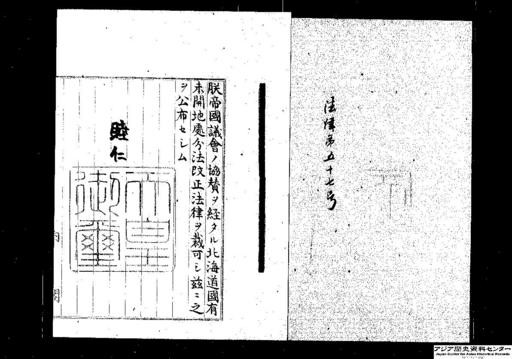 法律第五十七号
朕帝國議會ノ協賛ヲ経タル北海道國有
未開地處分法改正法律ヲ裁可シ茲ニ之
ヲ公布セシム
睦仁
天皇
御璽
アジア歴史資料センター
Japan Center for Asian Historical Records